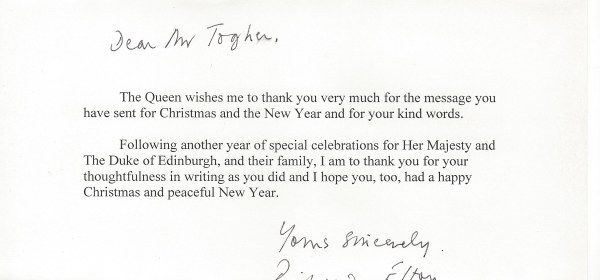 Dear Mr Togher,
The Queen wishes me to thank you very much for the message you
have sent for Christmas and the New Year and for your kind words.
Following another year of special celebrations for Her Majesty and
The Duke of Edinburgh, and their family, I am to thank you for your
thoughtfulness in writing as you did and I hope you, too, had a happy
Christmas and peaceful New Year.
Yours sincerely.